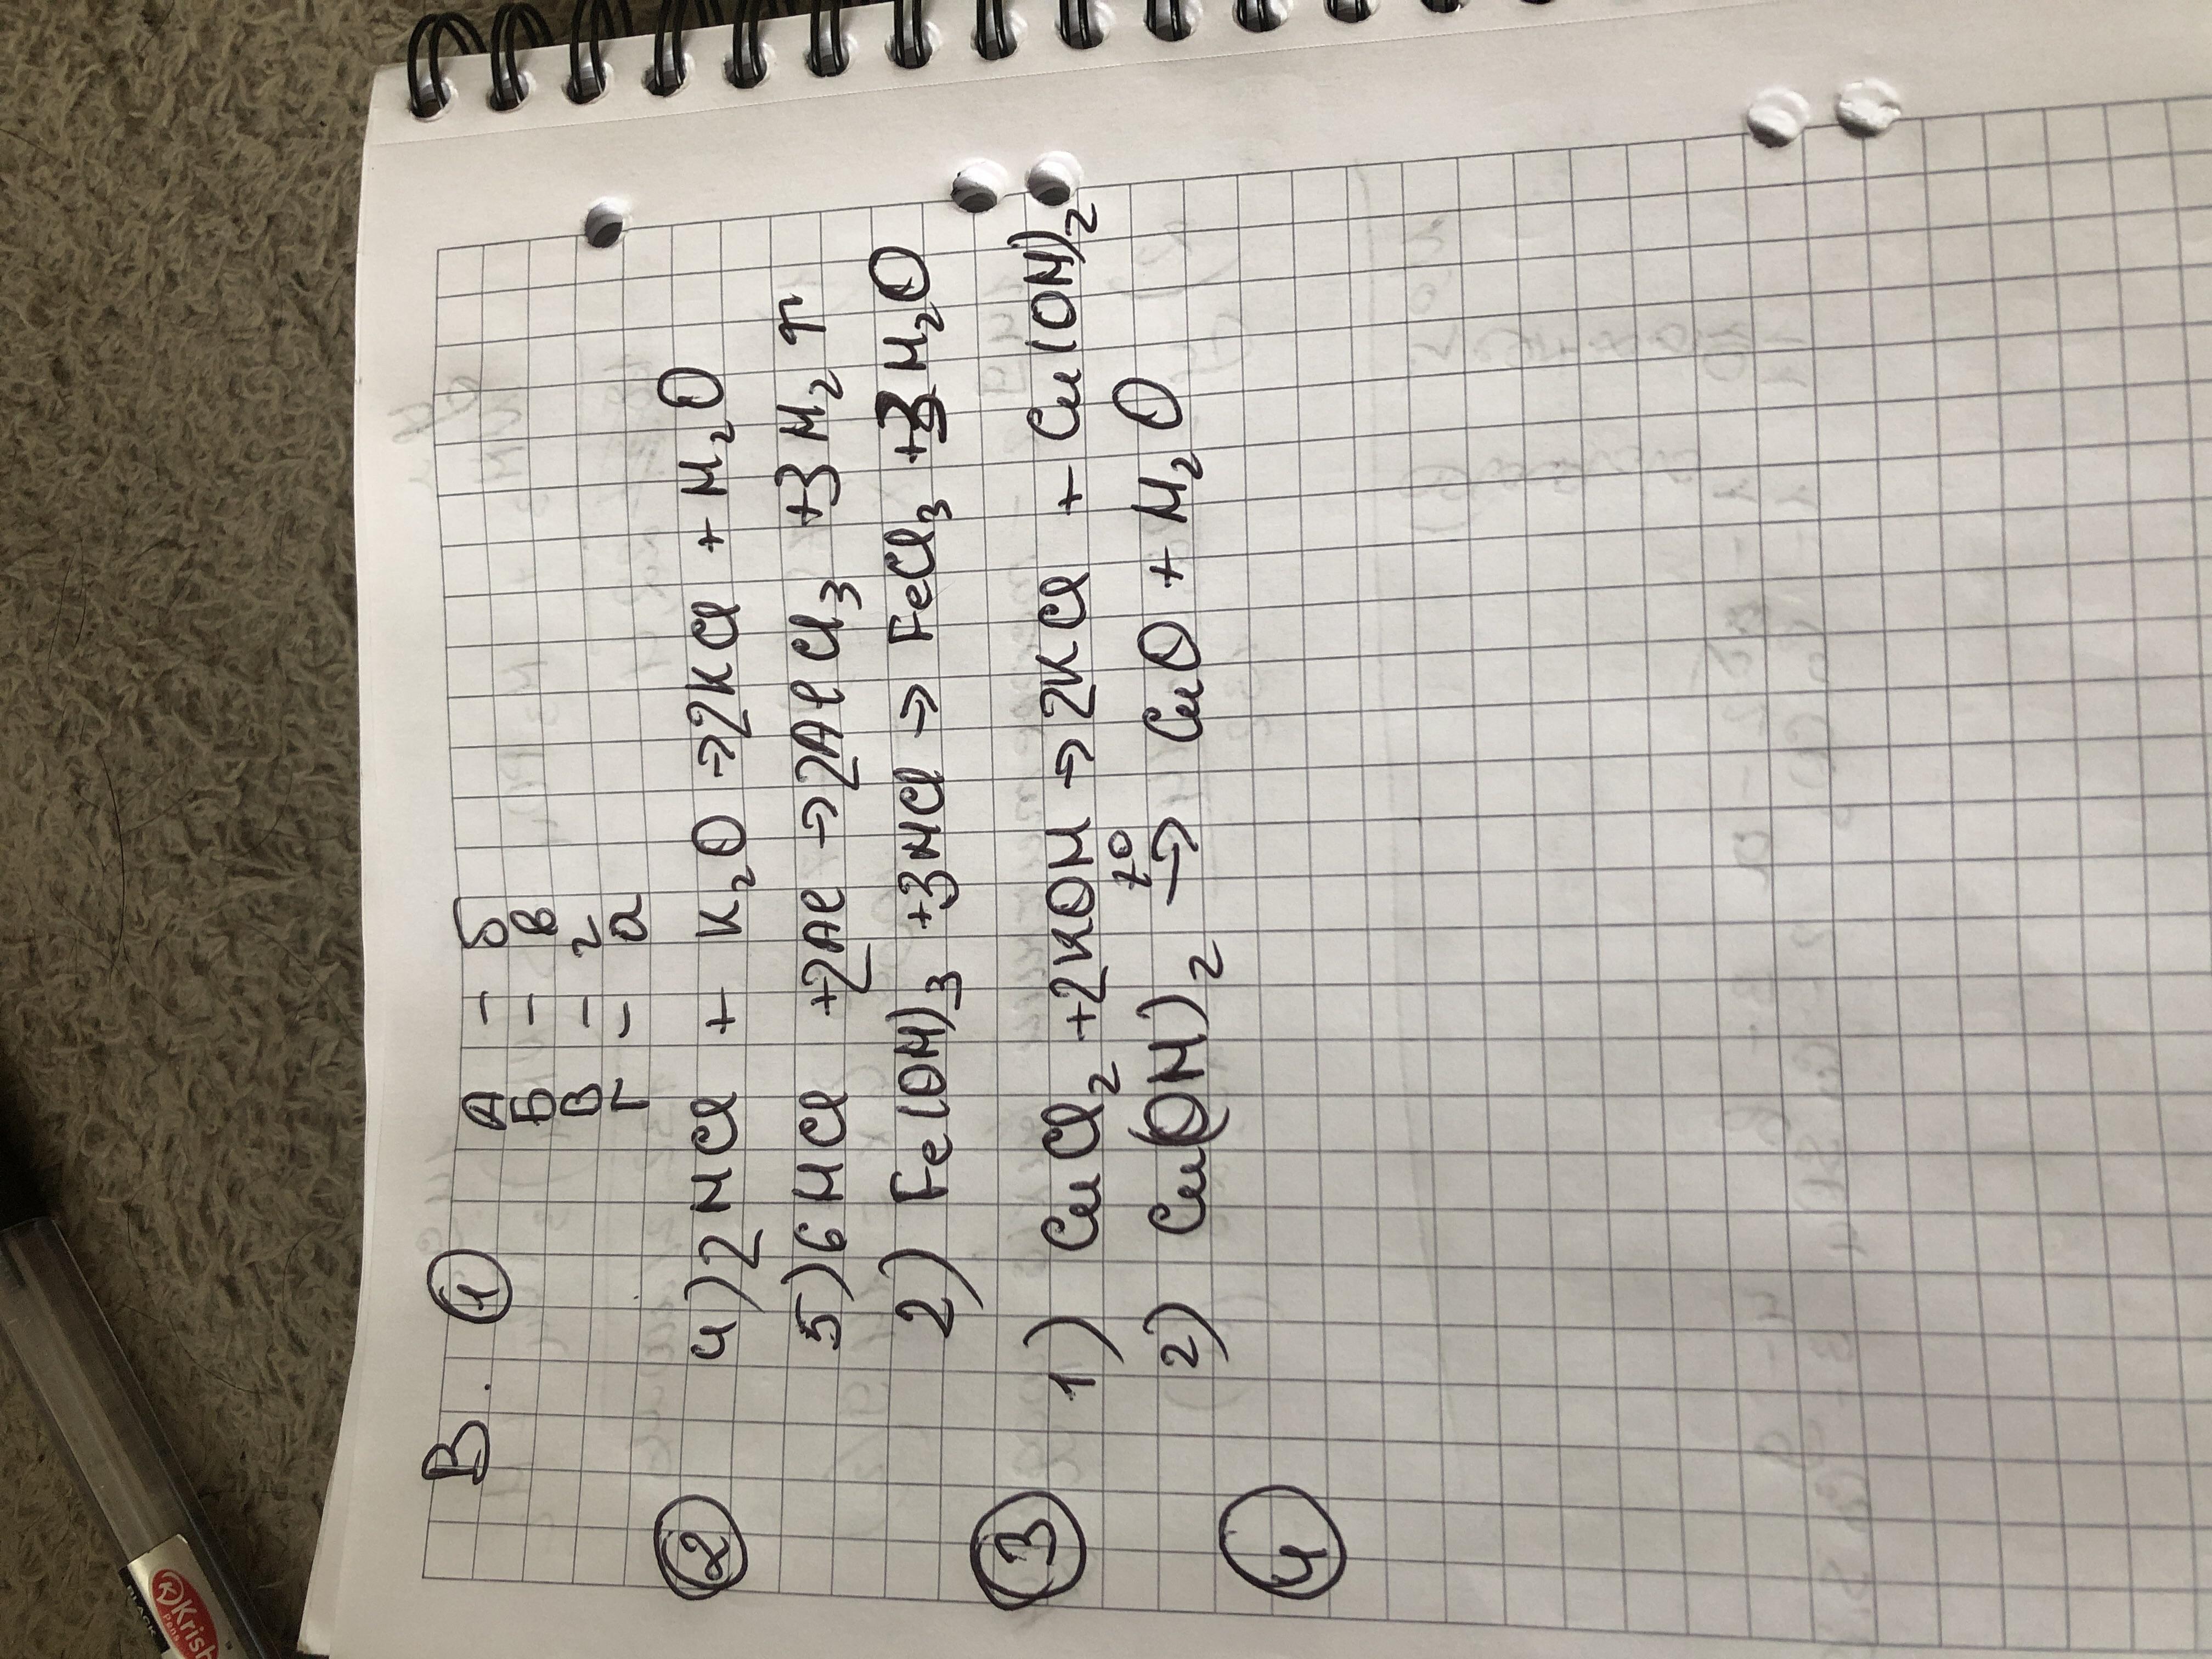 В. ① А – б
Б – в
В – г
Г – а
② 4) 2HCl + K₂O → 2KCl + H₂O
5) 6HCl + 2Al → 2AlCl₃ + 3H₂↑
2) Fe(OH)₃ + 3HCl → FeCl₃ + 3H₂O
③ 1) CuCl₂ + 2KOH → 2KCl + Cu(OH)₂
2) Cu(OH)₂ t° → CuO + H₂O
④
BLACK
Krish
Pens